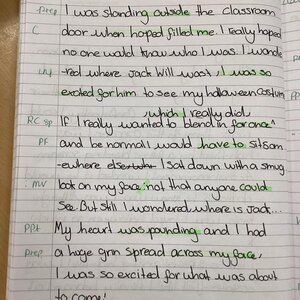 prep I was standing outside the classroom
C door when hoped filled me. I really hoped
no one would know who I was. I wonde
inf -red where Jack Will was, I was so
excited for him to see my halloween costum
, which I really did,
RC sp If I really wanted to blend in for once
PF and be normal I would have to sit som
-ewhere else. I sat down with a smug
mv look on my face, not that anyone could
see. But still I wondered where is Jack...
PPt My heart was pounding and I had
prep a huge grin spread across my face,
I was so excited for what was about
to come!